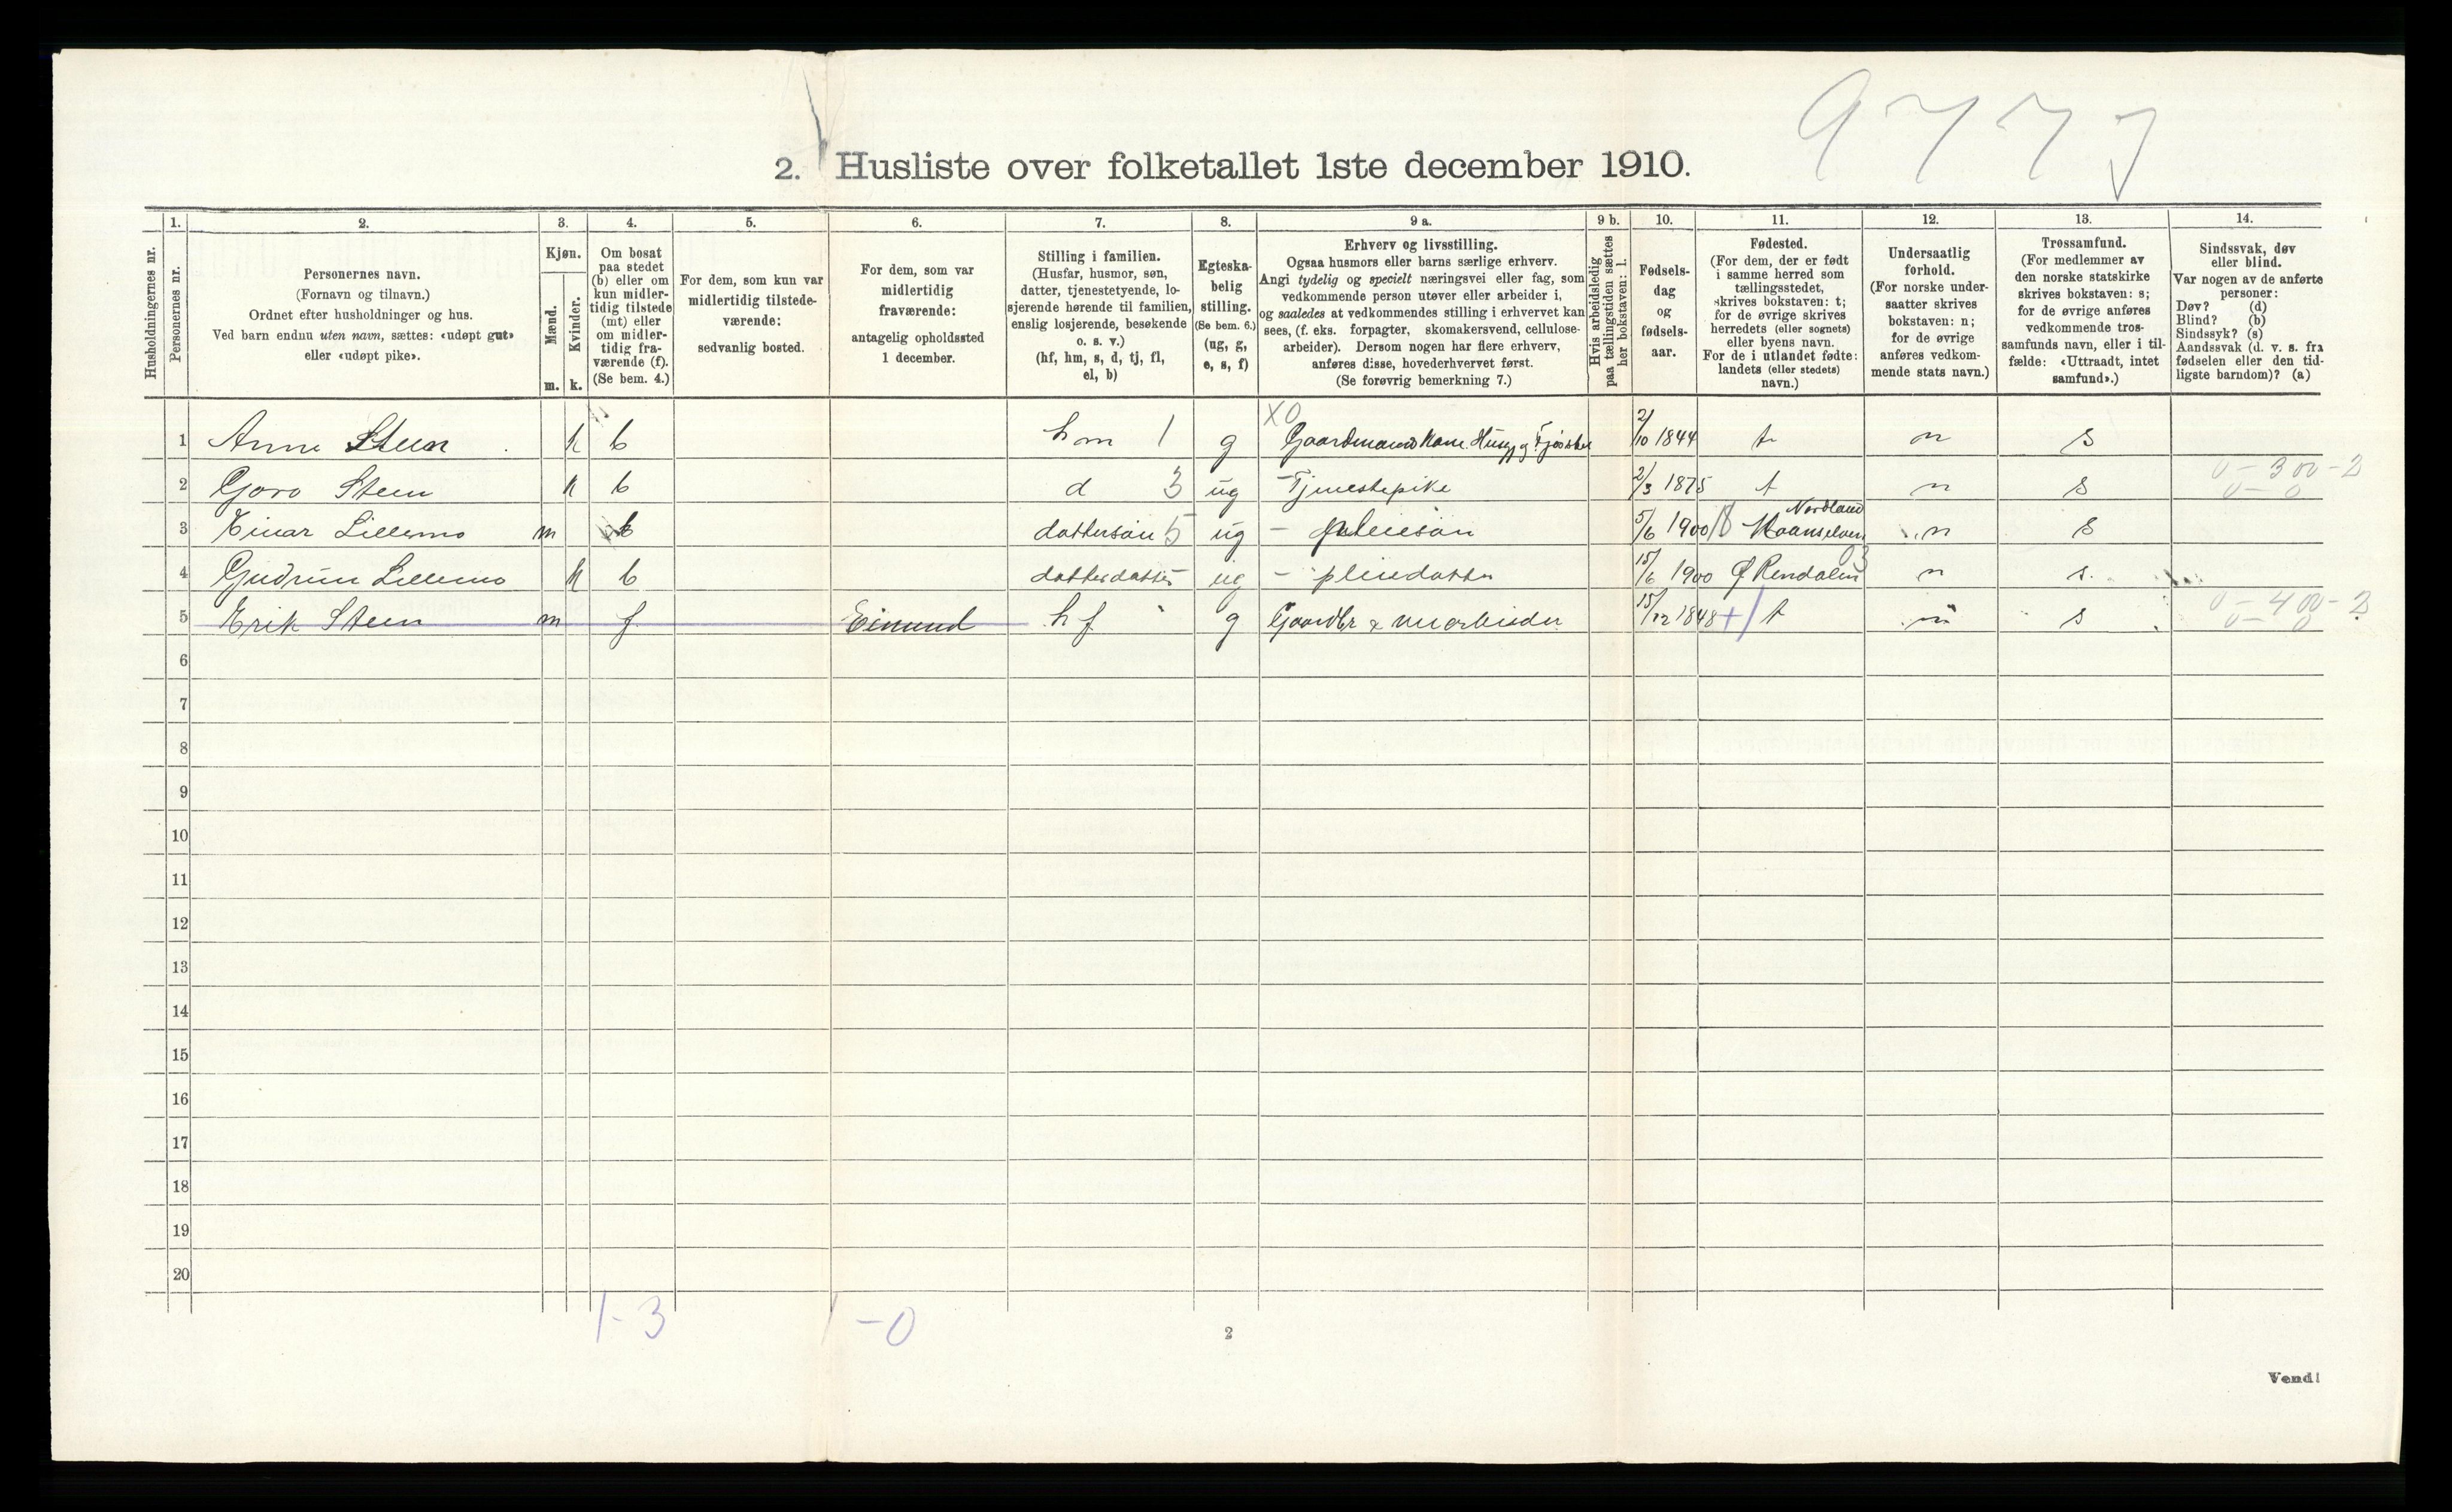 9777
2. Husliste over folketallet 1ste december 1910.
1. 2. 3. 4. 5. 6. 7. 8. 9 a. 9 b. 10. 11. 12. 13. 14.
Husholdningernes nr.
Personernes nr.
Personernes navn.
(Fornavn og tilnavn.)
Ordnet efter husholdninger og hus.
Ved barn endnu uten navn, sættes: «udøpt gut»
eller «udøpt pike».
Kjøn.
Mænd.
Kvinder.
m. k.
Om bosat
paa stedet
(b) eller om
kun midler-
tidig tilstede
(mt) eller
om midler-
tidig fra-
værende (f).
(Se bem. 4.)
For dem, som kun var
midlertidig tilstede-
værende:
sedvanlig bosted.
For dem, som var
midlertidig
fraværende:
antagelig opholdssted
1 december.
Stilling i familien.
(Husfar, husmor, søn,
datter, tjenestetyende, lo-
sjerende hørende til familien,
enslig losjerende, besøkende
o. s. v.)
(hf, hm, s, d, tj, fl,
el, b)
Egteska-
belig
stilling.
(Se bem. 6.)
(ug, g,
e, s, f)
Erhverv og livsstilling.
Ogsaa husmors eller barns særlige erhverv.
Angi tydelig og specielt næringsvei eller fag, som
vedkommende person utøver eller arbeider i,
og saaledes at vedkommendes stilling i erhvervet kan
sees, (f. eks. forpagter, skomakersvend, cellulose-
arbeider). Dersom nogen har flere erhverv,
anføres disse, hovederhvervet først.
(Se forøvrig bemerkning 7.)
Hvis arbeidsledig
paa tællingstiden sættes
her bokstaven: l.
Fødsels-
dag
og
fødsels-
aar.
Fødested.
(For dem, der er født
i samme herred som
tællingsstedet,
skrives bokstaven: t;
for de øvrige skrives
herredets (eller sognets)
eller byens navn.
For de i utlandet fødte:
landets (eller stedets)
navn.)
Undersaatlig
forhold.
(For norske under-
saatter skrives
bokstaven: n;
for de øvrige
anføres vedkom-
mende stats navn.)
Trossamfund.
(For medlemmer av
den norske statskirke
skrives bokstaven: s;
for de øvrige anføres
vedkommende tros-
samfunds navn, eller i til-
fælde: «Uttraadt, intet
samfund».)
Sindssvak, døv
eller blind.
Var nogen av de anførte
personer:
Døv? (d)
Blind? (b)
Sindssyk? (s)
Aandssvak (d. v. s. fra
fødselen eller den tid-
ligste barndom)? (a)
1 Anne Steen k b hm 1 g X0 Gaardmandskone. 2/10 1844 t n s
2 Goro Steen k b d 3 ug - Tjenestepike 2/3 1875 t n s 0-300-2
0-0
3 Einar Lillemo m b dattersøn 5 ug - pleiesøn 5/6 1900 Nordland n s
4 Gudrun Lillemo k b datterdatter ug - pleiedatter 15/6 1900 Ø Rendalen 03 n s.
5 Erik Steen m f Eimund hf g Gaardbr & 15/12 1848 + t n s 0-400-2
0-0
6
7
8
9
10
11
12
13
14
15
16
17
18
19
20
1-3 1-0
2
Vend!